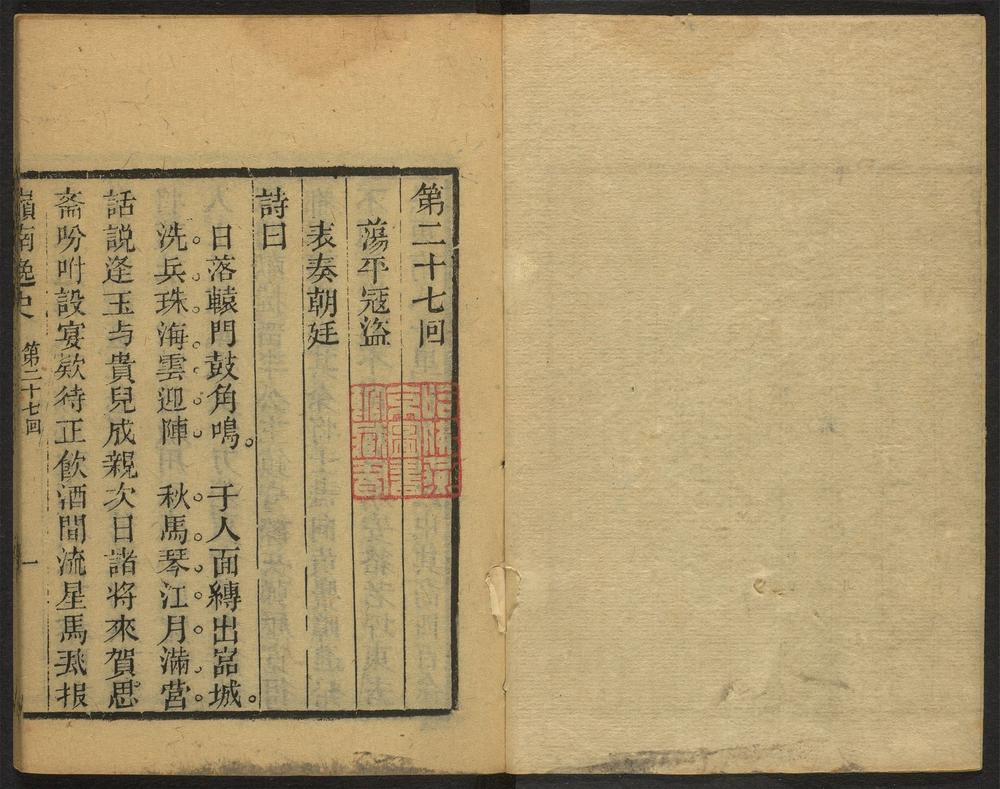 第二十七回
蕩平冦盜
表奏朝廷
詩曰
日落轅門鼓角鳴。 于人面縛出富城。
洗兵珠海雲迎陣 秋馬琴江月滿營
話說逢玉与貴兒成親次日諸將來賀思
齋吩咐設宴欵待正飲酒間流星馬飛报
嶺南逸史 第二十七回 一